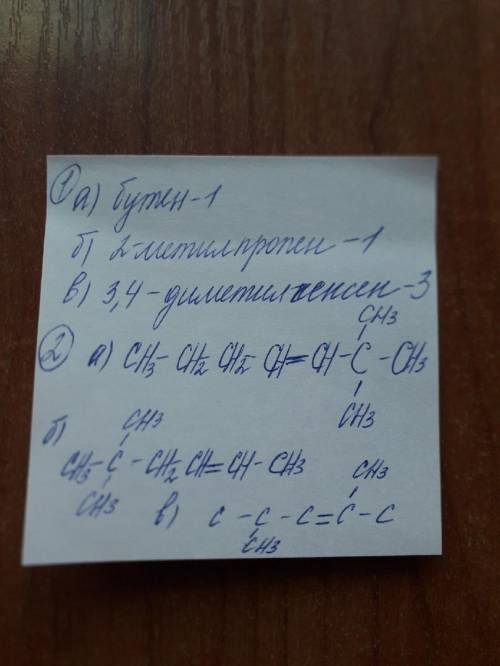 1 а) бутен-1
б) 2-метилпропен-1
в) 3,4-диметилгексен-3
CH3
2 а) CH3-CH2 CH2-CH=CH-C-CH3
CH3
CH3
б)
CH3-C-CH2 CH=CH-CH3
CH3
CH3
в) C-C-C=C-C
CH3